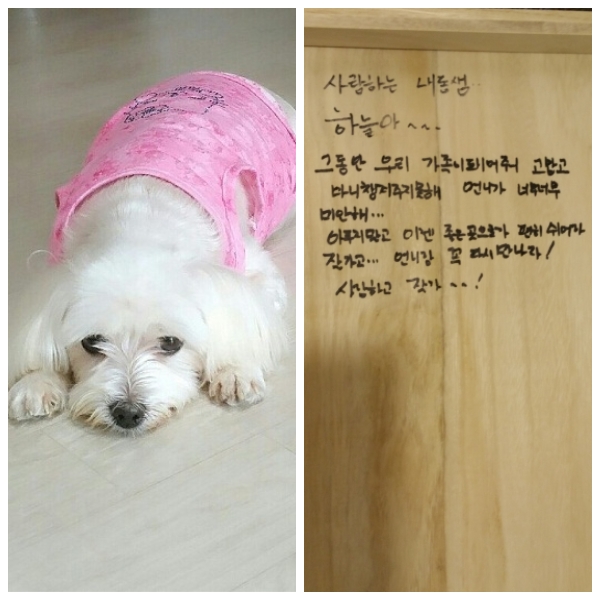 사랑하는 내동생..
하늘아~~~
그동안 우리 가족이되어줘서 고맙고
마니챙겨주지못해 언니가 너무너무
미안해...
아푸지말고 이젠 좋은곳으로가 편히 쉬어라
잘가고... 언니랑 꼭 다시만나자!
사랑하고 잘가~~!